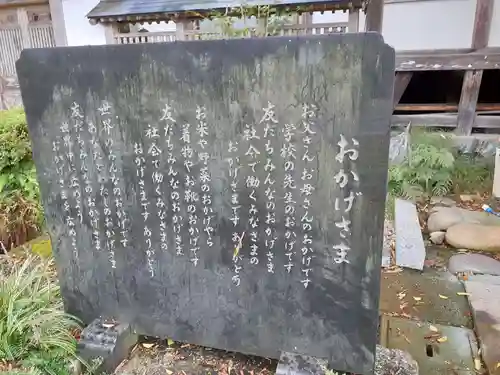 おかげさま
お父さん お母さんのおかげです
学校の先生のおかげです
友だちみんなのおかげさま
社会で働くみなさまの
おかげさまです ありがとう
お米や野菜のおかげやら
着物やお靴のおかげです
友だちみんなのおかげさま
社会で働くみなさまの
おかげさまです ありがとう
世界のみんなのおかげです
あなたとわたしのおかげさま
友だちみんなのおかげさま
世界中に広めよう
おかげさまを広めよう